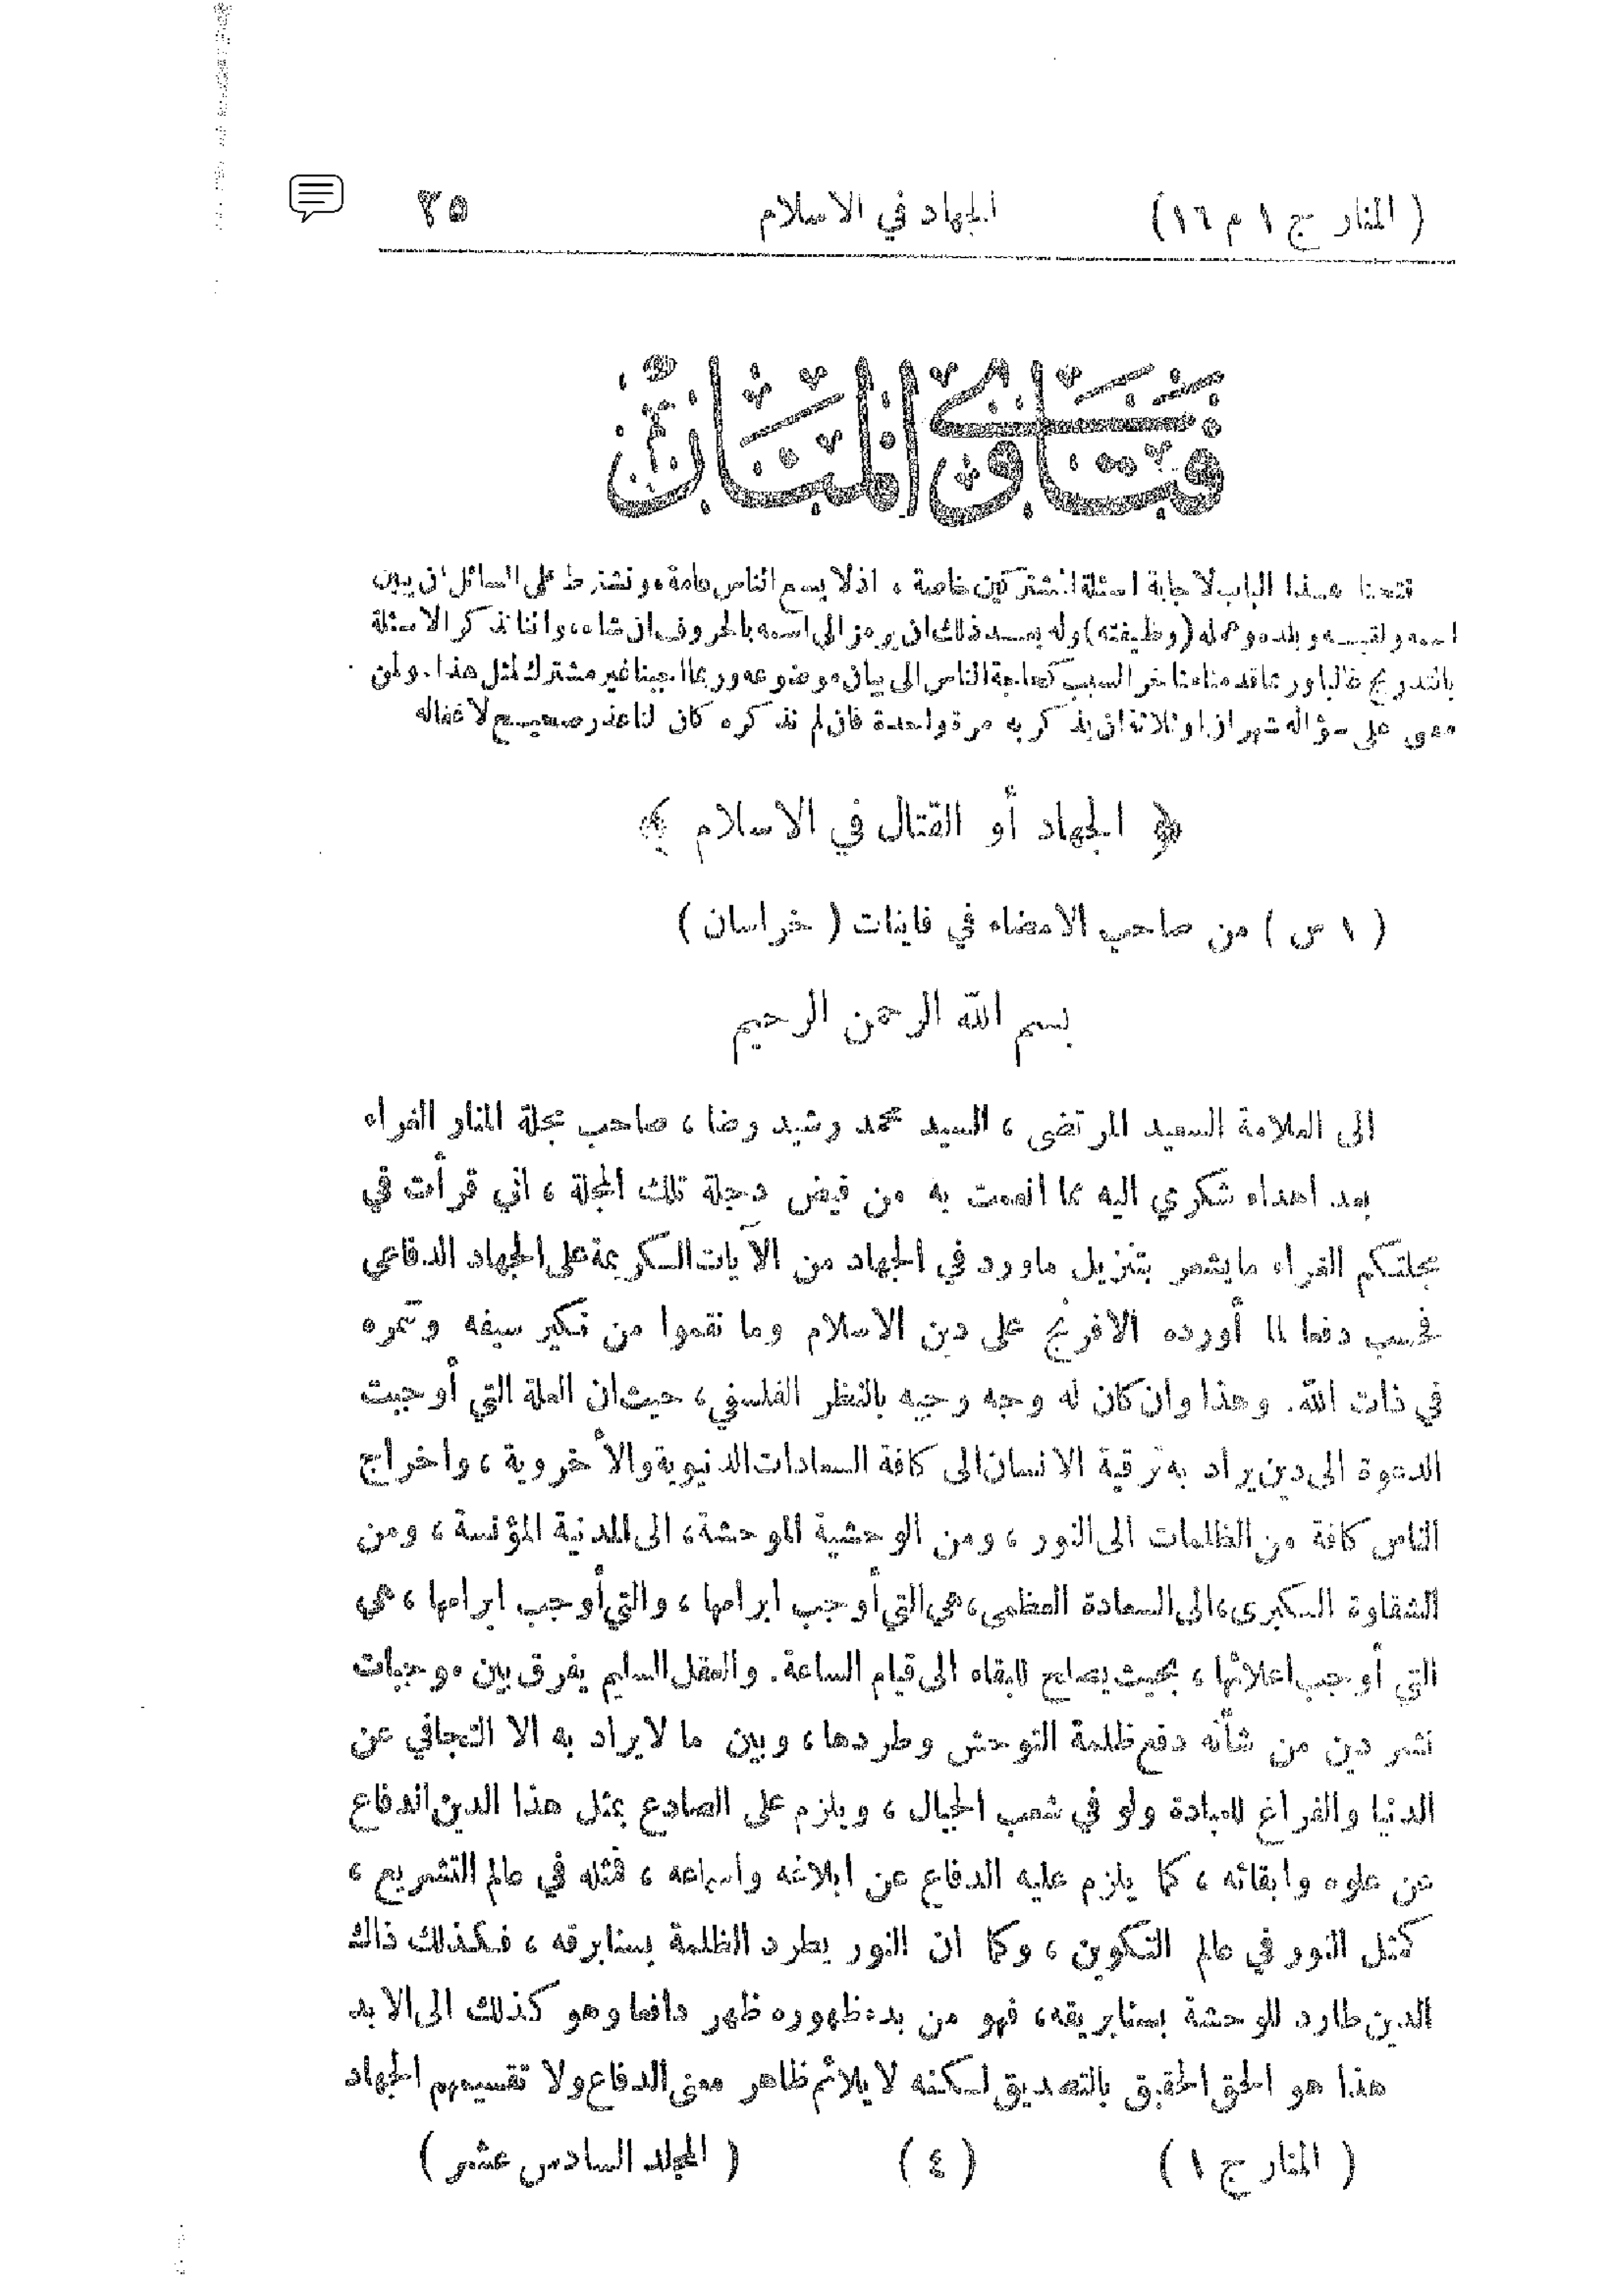 ( المنار ج ١ م ١٦) الجهاد في الاسلام ٢٥
فتاوى المنار
فتحنا هذا الباب لاجابة اسئلة المشتركين خاصة ، اذ لا يسع الناس عامة، ونشترط على السائل ان يبين
اسمه ولقبه وبلده وعمله (وظيفته) وله بعد ذلك ان يرمز الى اسمه بالحروف ان شاء، واننا نذكر الاسئلة
بالتدريج غالبا وربما قدمنا متأخر السبب كحاجة الناس الى بيان موضوعه وربما اجبنا غير مشترك لمثل هذا. ولمن
مضى على سؤاله شهران او ثلاثة ان يذكر به مرة واحدة فان لم نذكره كان لنا عذر صحيح لاغفاله
﴿ الجهاد أو القتال في الاسلام ﴾
( ١ س ) من صاحب الامضاء في قاينات ( خراسان )
بسم الله الرحمن الرحيم
الى العلامة السعيد المرتضى ، السيد محمد رشيد رضا ، صاحب مجلة المنار الغراء
بعد اهداء شكري اليه بما انعمت به من فيض دجلة تلك المجلة ، اني قرأت في
مجلتكم الغراء ما يشعر بتنزيل ماورد في الجهاد من الآيات الكريمة على الجهاد الدفاعي
فحسب دفعا لما أورده الافرنج على دين الاسلام وما نقموا من نكير سيفه وتنمره
في ذات الله. وهذا وان كان له وجه وجيه بالنظر الفلسفي، حيث ان العلة التي أوجبت
الدعوة الى دين يراد به ترقية الانسان الى كافة السعادات الدنيوية والأخروية ، واخراج
الناس كافة من الظلمات الى النور ، ومن الوحشية الموحشة، الى المدنية المؤنسة ، ومن
الشقاوة الكبرى، الى السعادة العظمى، هي التي أوجب ابرامها ، والتي أوجب ابرامها ، هي
التي أوجب اعلائها ، بحيث يصلح للبقاء الى قيام الساعة. والعقل السليم يفرق بين موجبات
نشر دين من شأنه دفع ظلمة التوحش وطردها، وبين ما لا يراد به الا التجافي عن
الدنيا والفراغ للعبادة ولو في شعب الجبال ، ويلزم على الصادع بمثل هذا الدين الدفاع
عن علوه وابقائه ، كما يلزم عليه الدفاع عن ابلاغه واسماعه ، فمثله في عالم التشريع ،
كمثل النور في عالم التكوين ، وكما ان النور يطرد الظلمة بسنا برقه ، فكذلك ذاك
الدين طارد للوحشة بسنا بريقه، فهو من بدء ظهوره ظهر دافعا وهو كذلك الى الابد
هذا هو الحق الحقيق بالتصديق لكنه لا يلائم ظاهر معنى الدفاع ولا تقسيمهم الجهاد
( المنار ج ١ ) ( ٤ ) ( المجلد السادس عشر )